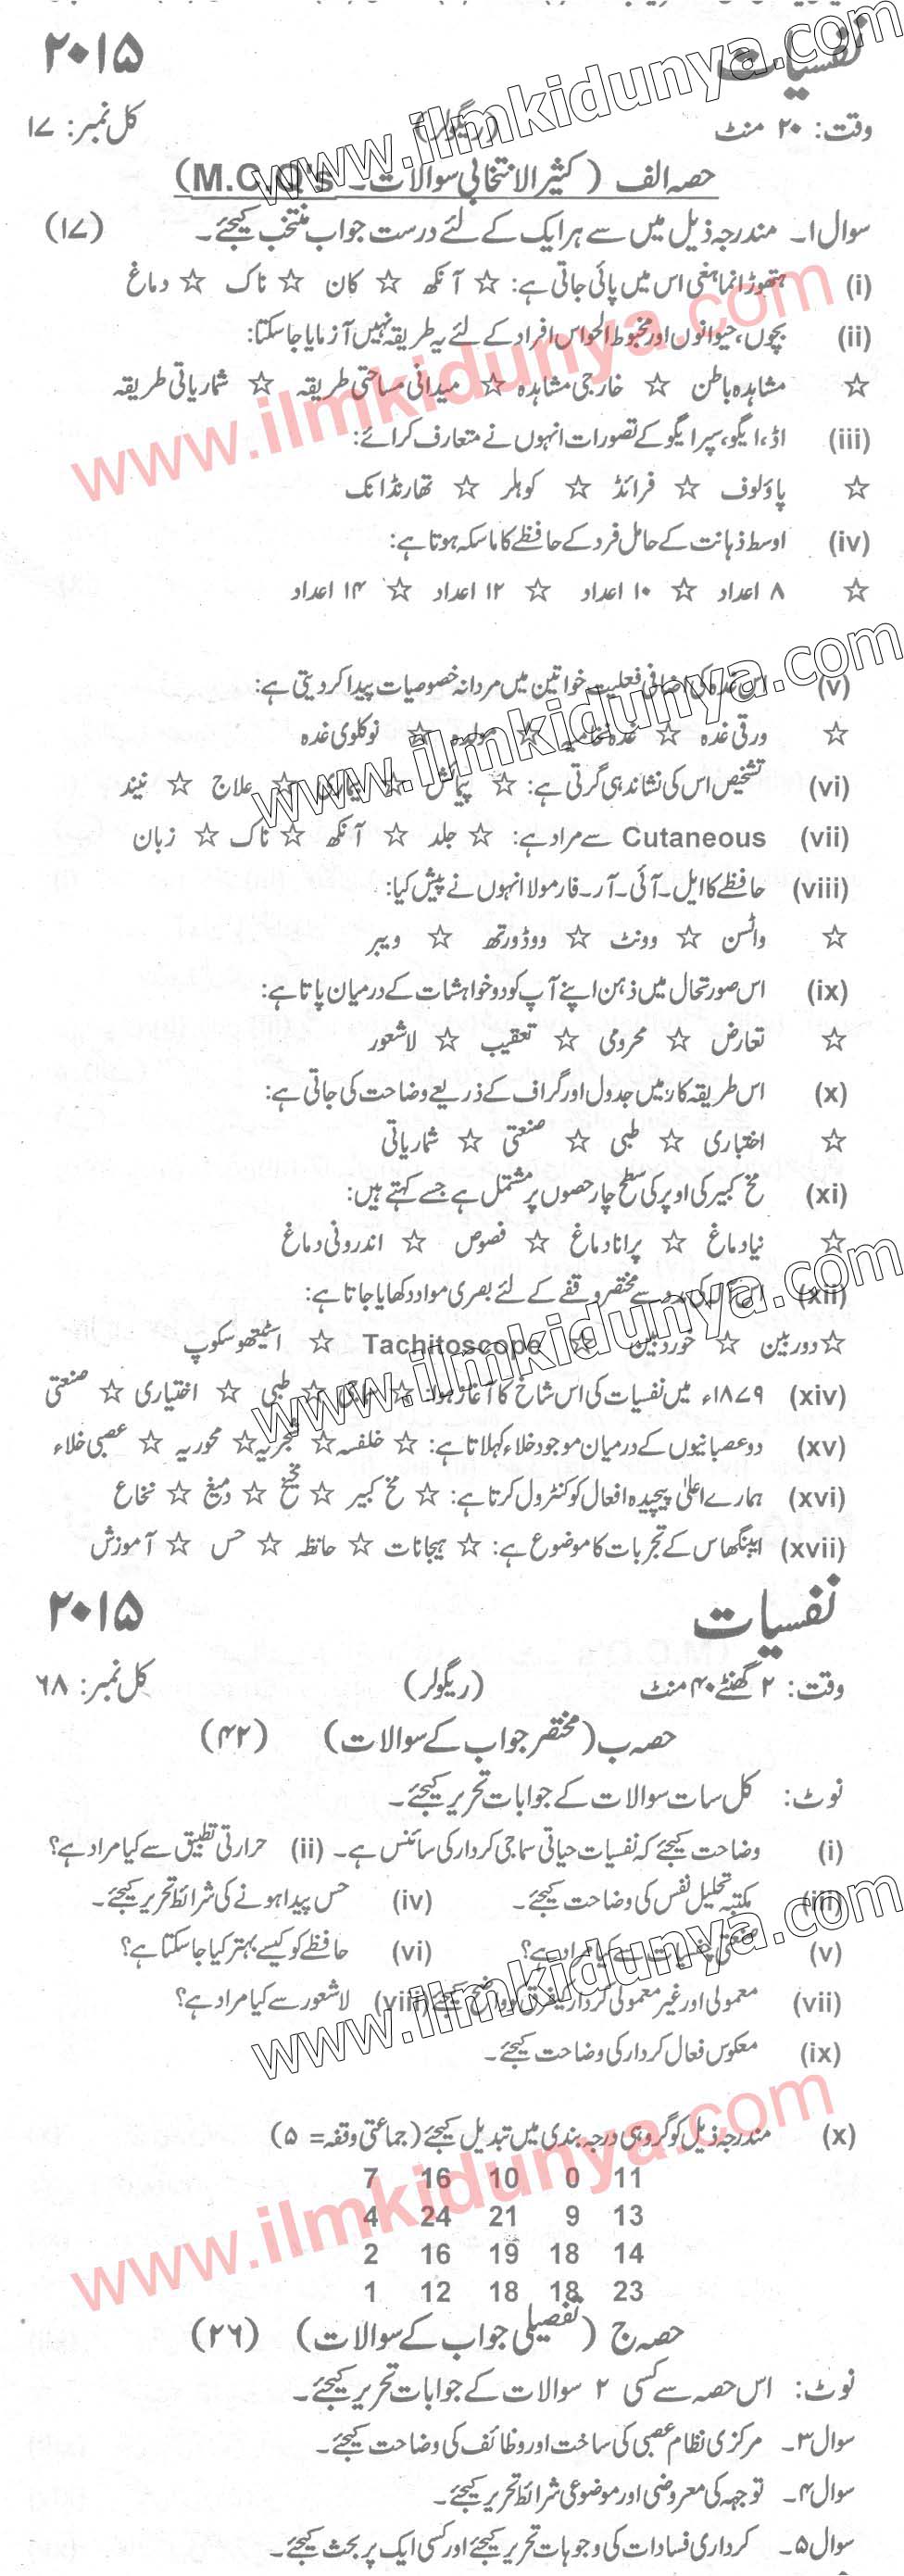 نفسیات ۲۰۱۵
وقت: ۲۰ منٹ (ریگولر) کل نمبر: ۱۷
حصہ الف ( کثیر الانتخابی سوالات۔ M.C.Q's)
سوال۱۔ مندرجہ ذیل میں سے ہر ایک کے لئے درست جواب منتخب کیجئے۔ (۱۷)
(i) ہتھوڑا نما ہڈی اس میں پائی جاتی ہے: ☆ آنکھ ☆ کان ☆ ناک ☆ دماغ
(ii) بچوں، حیوانوں اور مخبوط الحواس افراد کے لئے یہ طریقہ نہیں آزمایا جا سکتا:
☆ مشاہدہ باطن ☆ خارجی مشاہدہ ☆ میدانی مساحتی طریقہ ☆ شماریاتی طریقہ
(iii) اڈ، ایگو، سپر ایگو کے تصورات انہوں نے متعارف کرائے:
☆ پاؤلوف ☆ فرائڈ ☆ کوہلر ☆ تھارنڈائک
(iv) اوسط ذہانت کے حامل فرد کے حافظے کا ماسکہ ہوتا ہے:
☆ ۸ اعداد ☆ ۱۰ اعداد ☆ ۱۲ اعداد ☆ ۱۴ اعداد
(v) اس غدہ کی اضافی فعلیت خواتین میں مردانہ خصوصیات پیدا کر دیتی ہے:
☆ ورقی غدہ ☆ غدہ نخامیہ ☆ مولدہ ☆ نوکلوی غدہ
(vi) تشخیص اس کی نشاندہی گرتی ہے: ☆ پیمائش ☆ بیماری ☆ علاج ☆ نیند
(vii) Cutaneous سے مراد ہے: ☆ جلد ☆ آنکھ ☆ ناک ☆ زبان
(viii) حافظے کا ایل۔آئی۔آر۔فارمولا انہوں نے پیش کیا:
☆ واٹسن ☆ وونٹ ☆ ووڈورتھ ☆ ویبر
(ix) اس صورتحال میں ذہن اپنے آپ کو دو خواہشات کے درمیان پاتا ہے:
☆ تعارض ☆ محرومی ☆ تعقیب ☆ لاشعور
(x) اس طریقہ کار میں جدول اور گراف کے ذریعے وضاحت کی جاتی ہے:
☆ اختباری ☆ طبی ☆ صنعتی ☆ شماریاتی
(xi) مخ کبیر کی اوپر کی سطح چار حصوں پر مشتمل ہے جسے کہتے ہیں:
☆ نیا دماغ ☆ پرانا دماغ ☆ فصوص ☆ اندرونی دماغ
(xii) اس آلہ کی مدد سے مختصر وقفے کے لئے بصری مواد دکھایا جاتا ہے:
☆ دوربین ☆ خوردبین ☆ Tachitoscope ☆ اسٹیتھوسکوپ
(xiv) ۱۸۷۹ء میں نفسیات کی اس شاخ کا آغاز ہوا: ☆ سماجی ☆ طبی ☆ اختیاری ☆ صنعتی
(xv) دو عصبانیوں کے درمیان موجود خلاء کہلاتا ہے: ☆ خلفہ ☆ شجریہ ☆ محوریہ ☆ عصبی خلاء
(xvi) ہمارے اعلیٰ پیچیدہ افعال کو کنٹرول کرتا ہے: ☆ مخ کبیر ☆ مخیخ ☆ دمیغ ☆ نخاع
(xvii) ایبنگھاس کے تجربات کا موضوع ہے: ☆ ہیجانات ☆ حافظہ ☆ حس ☆ آموزش
نفسیات ۲۰۱۵
وقت: ۲ گھنٹے ۴۰ منٹ (ریگولر) کل نمبر: ۶۸
حصہ ب (مختصر جواب کے سوالات) (۴۲)
نوٹ: کل سات سوالات کے جوابات تحریر کیجئے۔
(i) وضاحت کیجئے کہ نفسیات حیاتی سماجی کردار کی سائنس ہے۔ (ii) حرارتی تطبیق سے کیا مراد ہے؟
(iii) مکتبہ تحلیل نفس کی وضاحت کیجئے۔ (iv) حس پیدا ہونے کی شرائط تحریر کیجئے۔
(v) صنعتی نفسیات سے کیا مراد ہے؟ (vi) حافظے کو کیسے بہتر کیا جا سکتا ہے؟
(vii) معمولی اور غیر معمولی کردار کے فرق کو واضح کیجئے (viii) لاشعور سے کیا مراد ہے؟
(ix) معکوس فعال کردار کی وضاحت کیجئے۔
(x) مندرجہ ذیل کو گروہی درجہ بندی میں تبدیل کیجئے (جماعتی وقفہ = ۵)
7 16 10 0 11
4 24 21 9 13
2 16 19 18 14
1 12 18 18 23
حصہ ج (تفصیلی جواب کے سوالات) (۲۶)
نوٹ: اس حصہ سے کسی ۲ سوالات کے جوابات تحریر کیجئے۔
سوال۳۔ مرکزی نظام عصبی کی ساخت اور وظائف کی وضاحت کیجئے۔
سوال۴۔ توجہ کی معروضی اور موضوعی شرائط تحریر کیجئے۔
سوال۵۔ کرداری فسادات کی وجوہات تحریر کیجئے اور کسی ایک پر بحث کیجئے۔
www.ilmkidunya.com
www.ilmkidunya.com
www.ilmkidunya.com
www.ilmkidunya.com
www.ilmkidunya.com
www.ilmkidunya.com